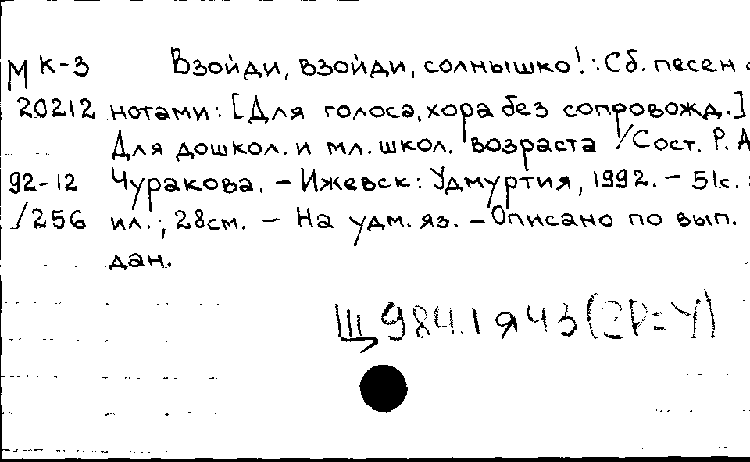 М К-3 Взойди, взойди, солнышко!: Сб. песен с
20212 нотами: [Для голоса, хора без сопровожд.]
Для дошкол. и мл. школ. возраста / Сост. Р. А
92-12 Чуракова. – Ижевск: Удмуртия, 1992. – 51с.:
/256 ил.; 28см. – На удм. яз. – Описано по вып.
дан.
Щ984.1я43(2Р=У)